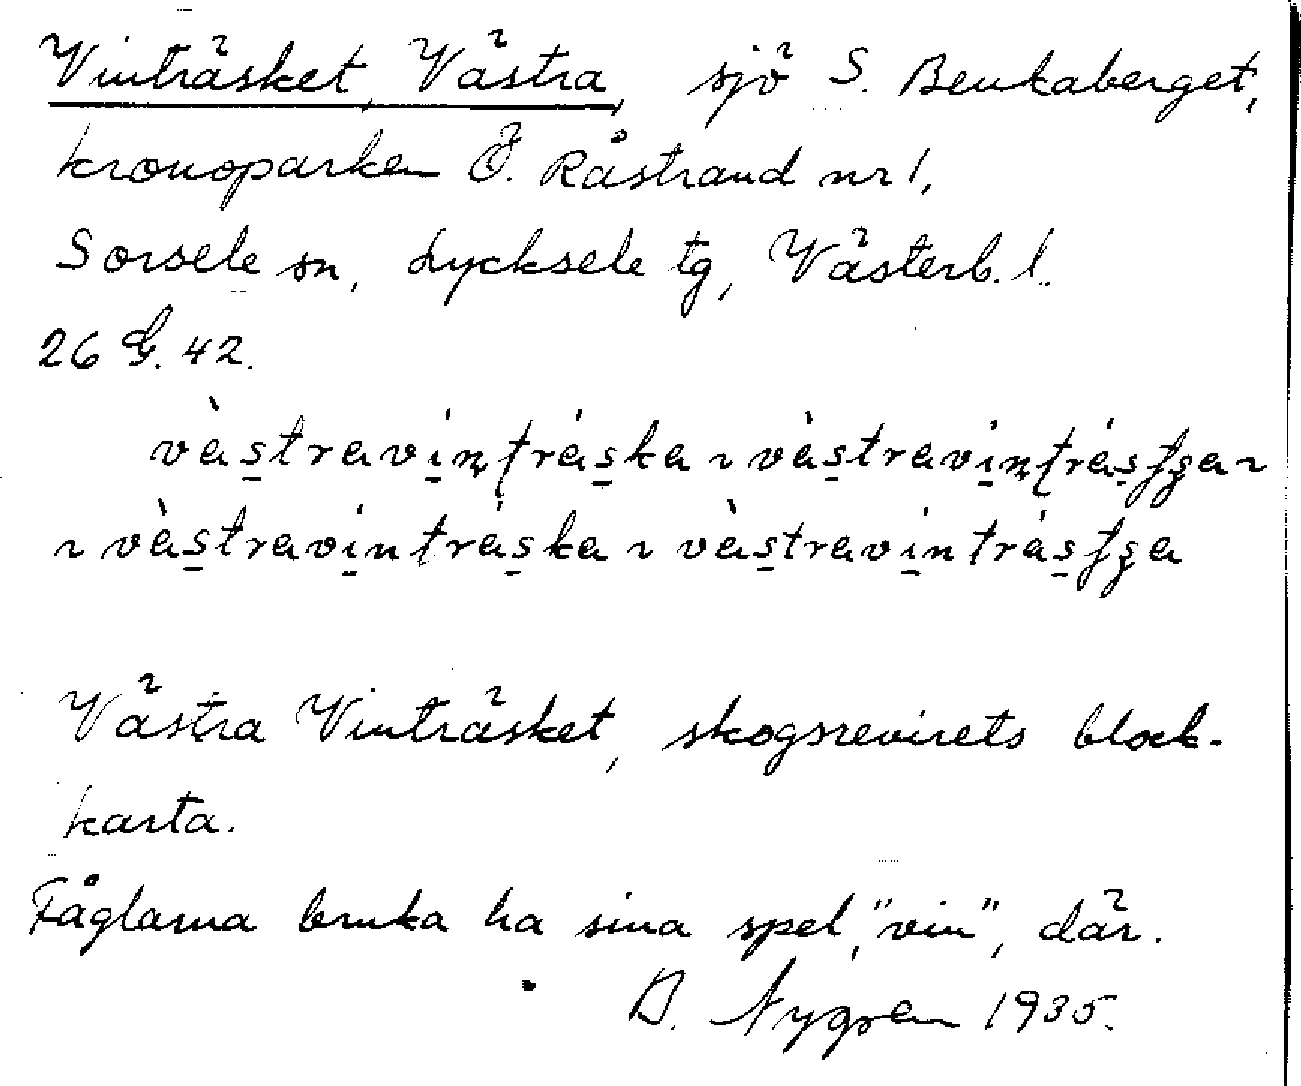 Vinträsket, Västra, sjö S. Beukaberget,
kronoparken Ö. Råstrand nr 1,
Sorsele sn, Lycksele tg, Västerb. l.
26 G. 42.
vàstravinʈráska ~ vàstravinʈrásʃʒa ~
~ vàstravintráska ~ vàstravintrásʃʒa
Västra Vinträsket, skogsrevirets block-
karta.
Fåglarna bruka ha sina spel, "vin", där.
B. Nygren 1935.